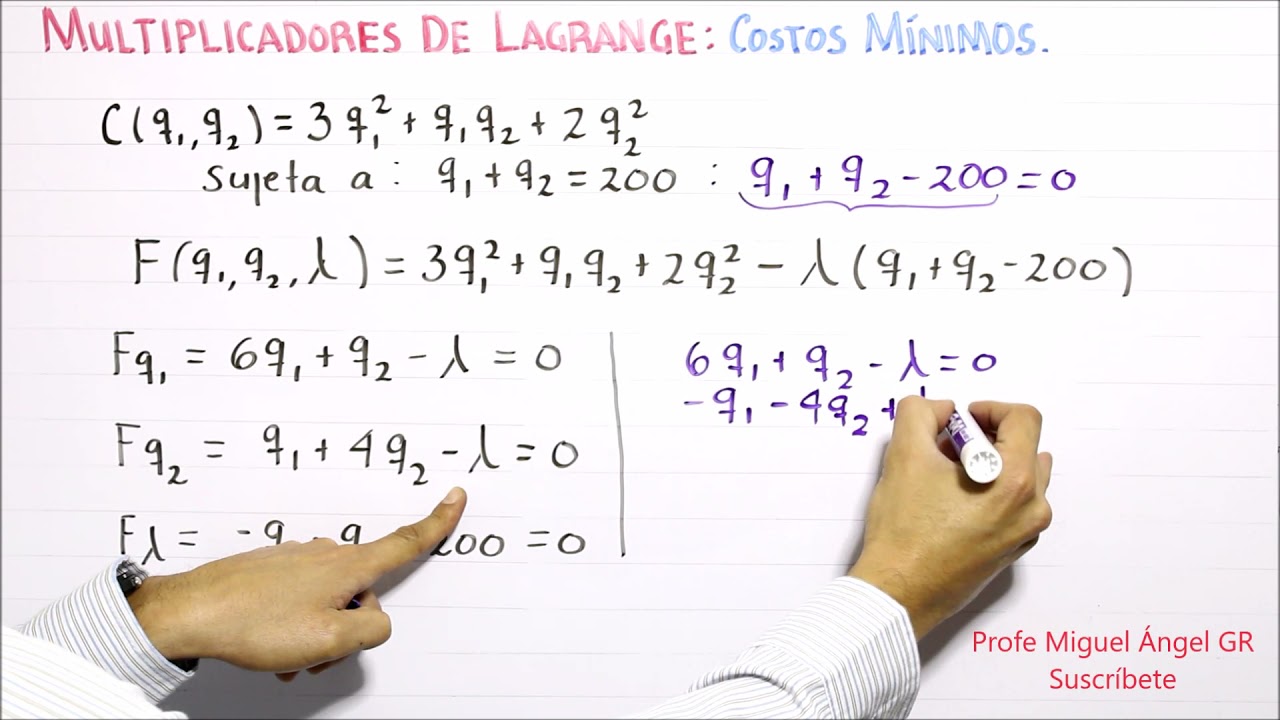 MULTIPLICADORES DE LAGRANGE: COSTOS MÍNIMOS.
C(q₁,q₂) = 3q₁² + q₁q₂ + 2q₂²
sujeta a: q₁ + q₂ = 200 : q₁ + q₂ - 200 = 0
F(q₁,q₂,λ) = 3q₁² + q₁q₂ + 2q₂² - λ(q₁ + q₂ - 200)
Fq₁ = 6q₁ + q₂ - λ = 0
Fq₂ = q₁ + 4q₂ - λ = 0
Fλ = -q - q 200 = 0
6q₁ + q₂ - λ = 0
-q₁ - 4q₂ +
Profe Miguel Ángel GR
Suscríbete